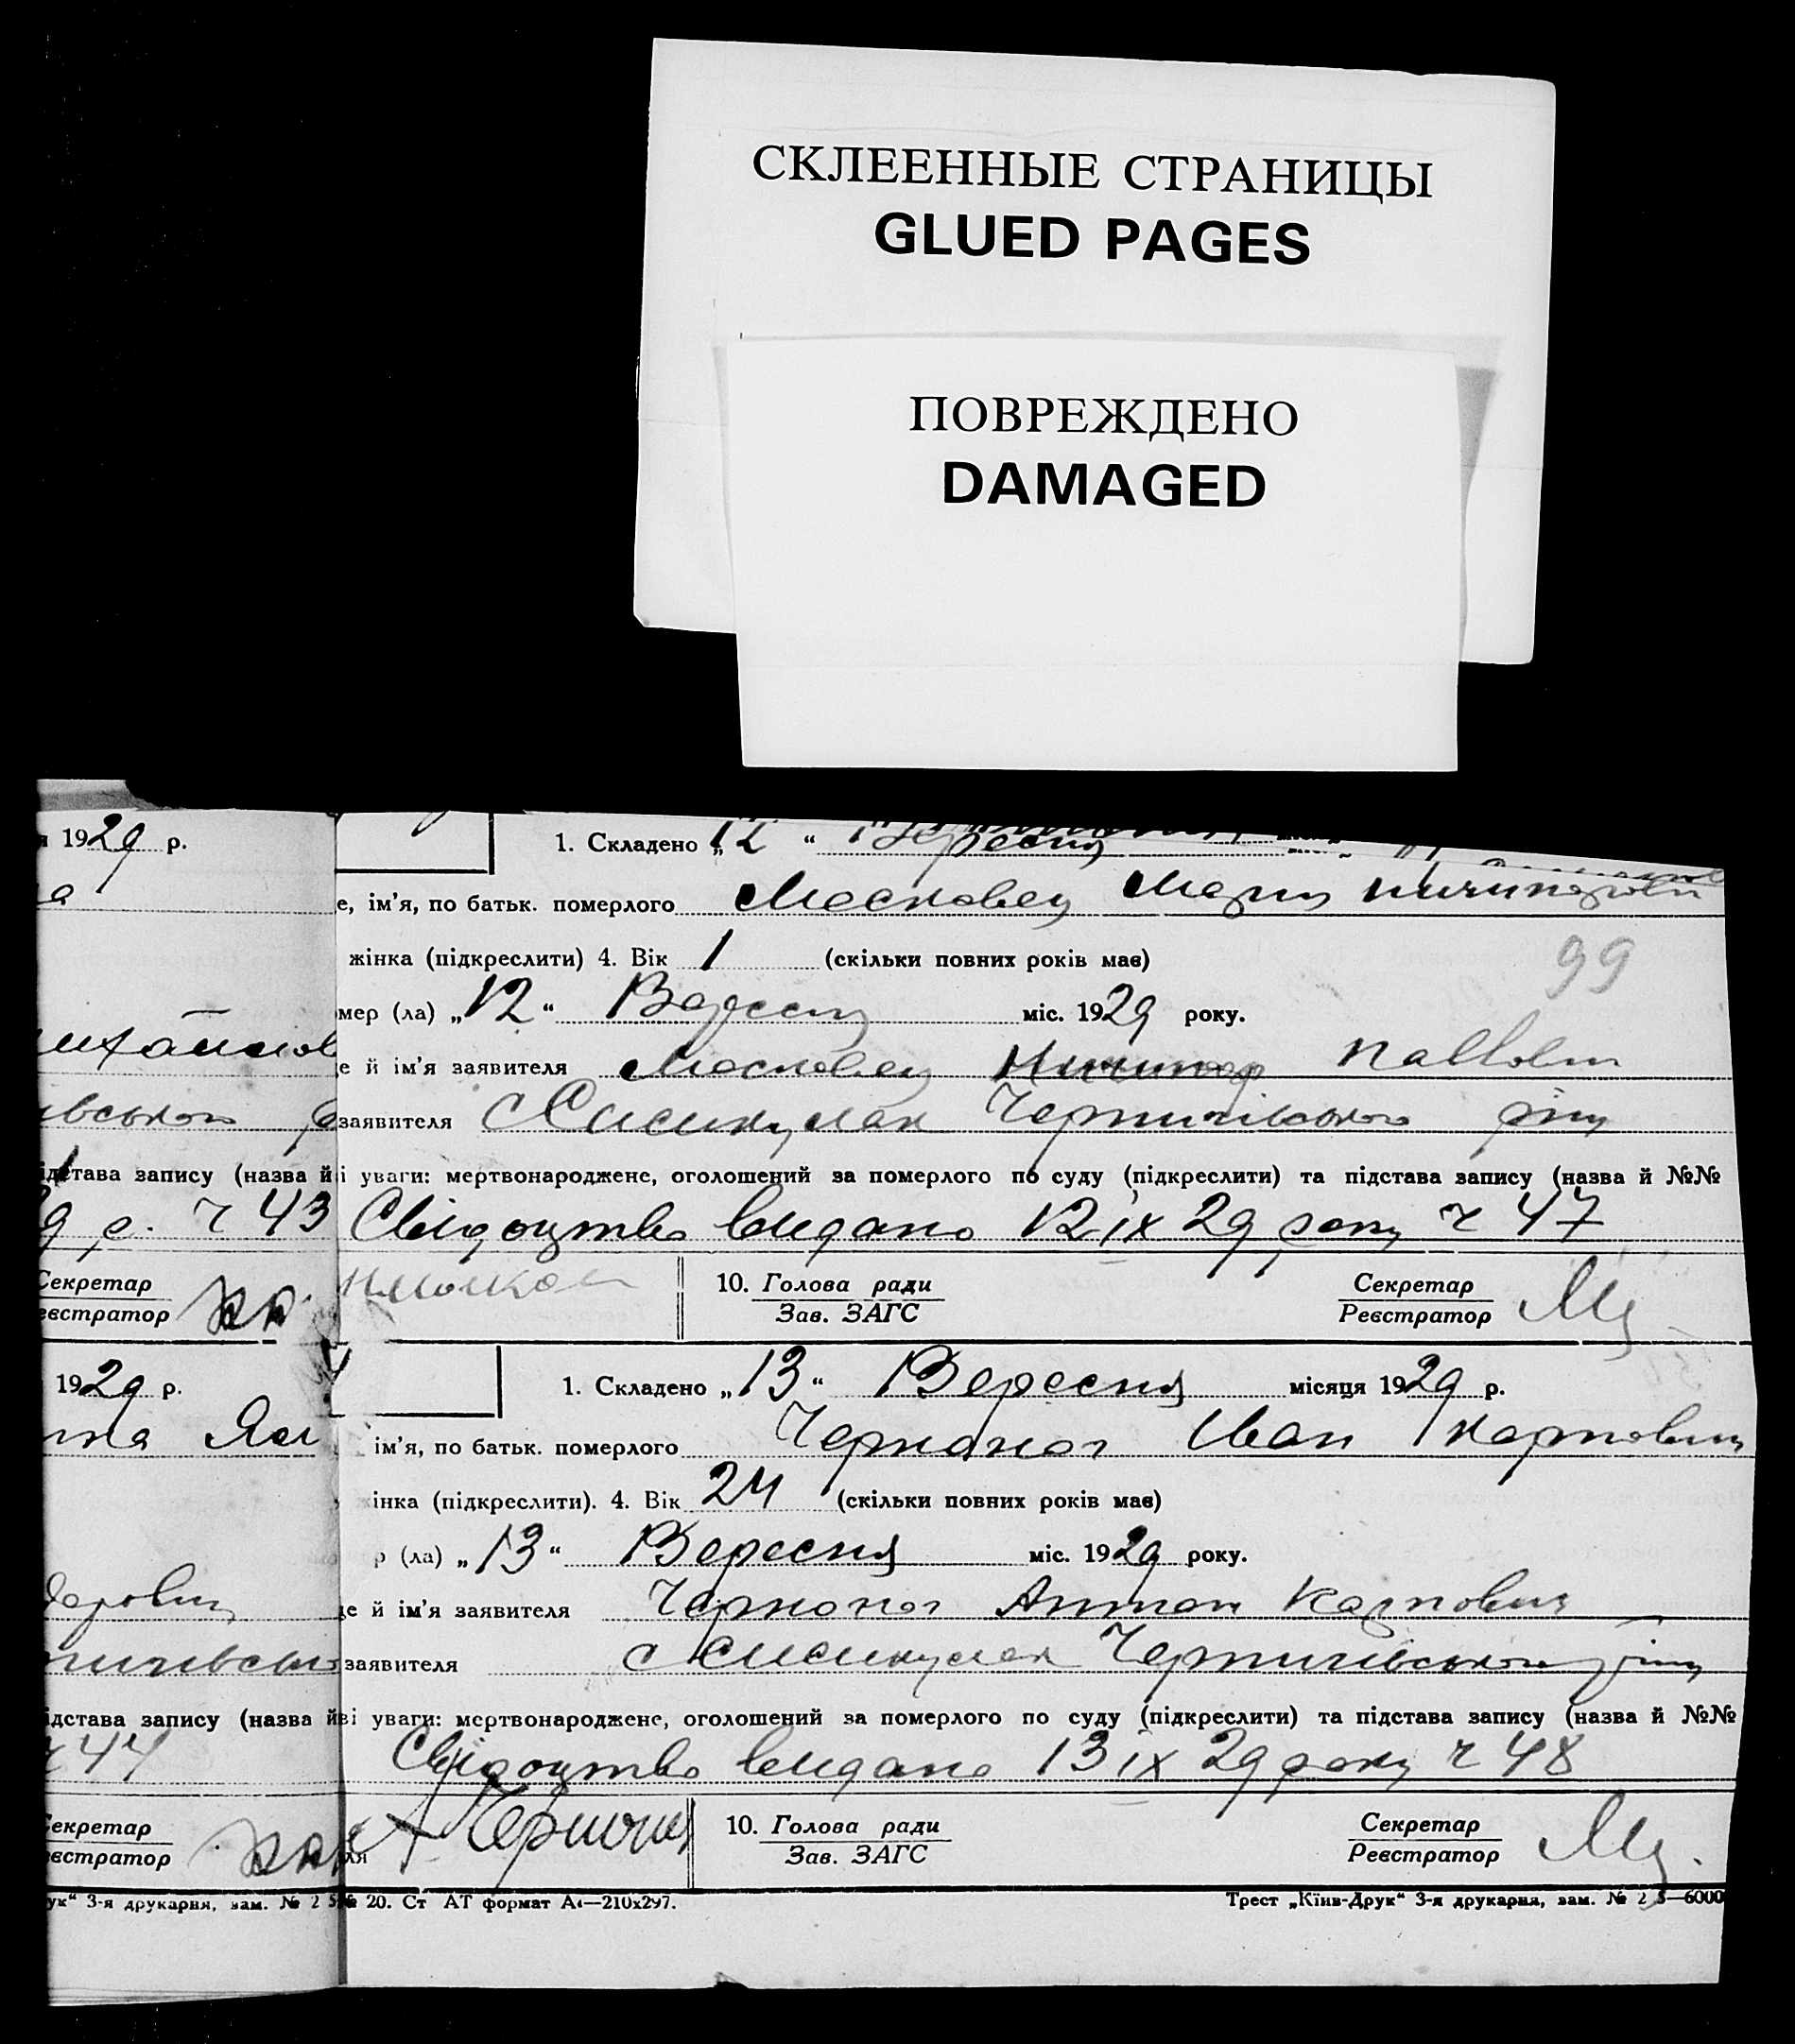 СКЛЕЕННЫЕ СТРАНИЦЫ
GLUED PAGES
ПОВРЕЖДЕНО
DAMAGED
1929 р.
1. Складено „12 “ Вересня
е, ім’я, по батьк. померлого Московец
жінка (підкреслити) 4. Вік 1 (скільки повних років має)
99
мер (ла) „12“ Вересня міс. 1929 року.
е й ім’я заявителя Московец
заявителя
ідстава запису (назва й
і уваги: мертвонароджене, оголошений за померлого по суду (підкреслити) та підстава запису (назва й №№
9 р. ч 43
Свідоцтво видано 12 ІХ 29 року ч 47
Секретар
еєстратор
10. Голова ради
Зав. ЗАГС
Секретар
Реєстратор
1929 р.
1. Складено „13“ Вересня місяця 1929 р.
ім’я, по батьк. померлого Чорноног Іван Карпович
інка (підкреслити). 4. Вік 24 (скільки повних років має)
р (ла) „13“ Вересня міс. 1929 року.
це й ім’я заявителя Чорноног Антон Карпович
заявителя
ідстава запису (назва й
ві уваги: мертвонароджене, оголошений за померлого по суду (підкреслити) та підстава запису (назва й №№
ч 44
Свідоцтво видано 13 ІХ 29 року ч 48
Секретар
еєстратор
ля
10. Голова ради
Зав. ЗАГС
Секретар
Реєстратор
ук“ 3-я друкарня, зам. № 2
№ 20. Ст АТ формат А4—210х297.
Трест „Київ-Друк“ 3-я друкарня, зам. № 2 5—6000